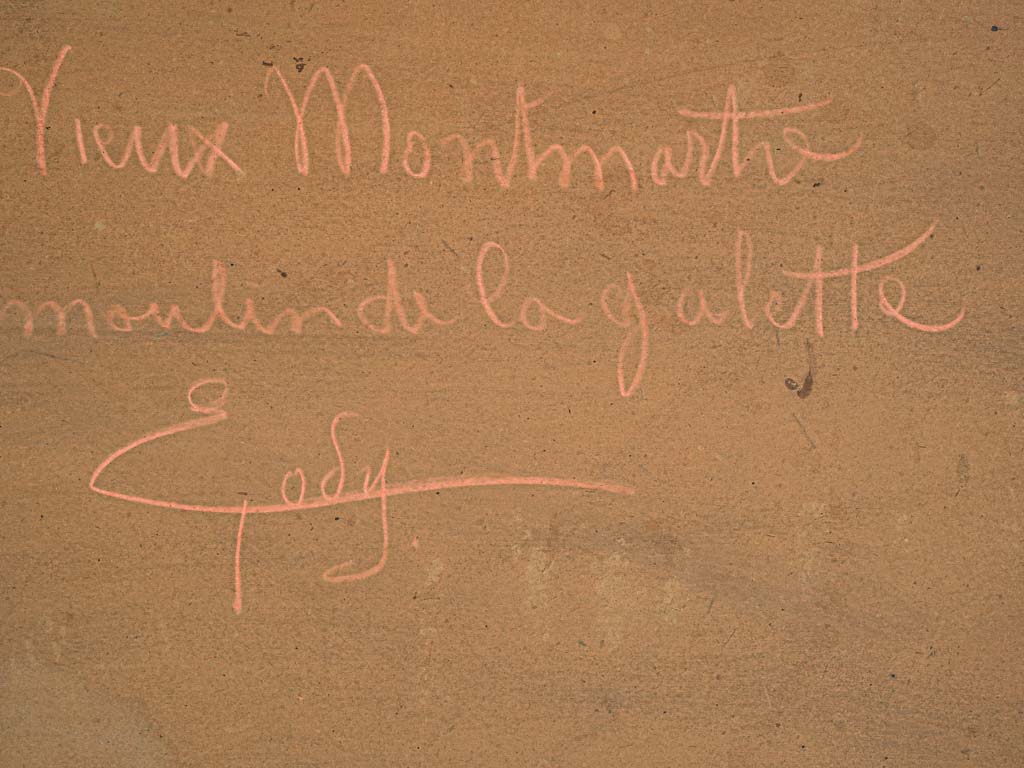 Vieux Montmartre
moulin de la galette
Gody.